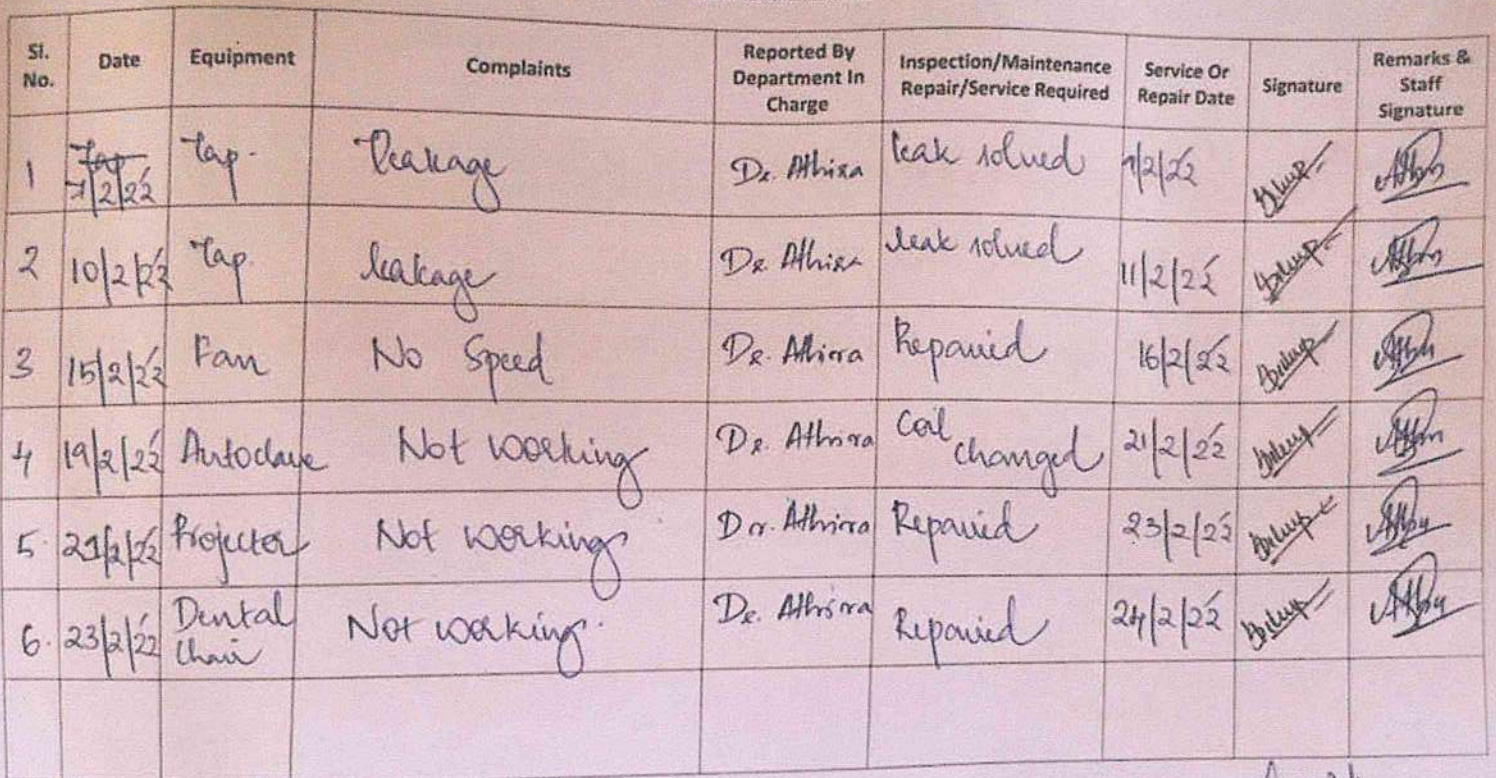 Sl. No. Date Equipment Complaints Reported By Department In Charge Inspection/Maintenance Repair/Service Required Service Or Repair Date Signature Remarks & Staff Signature
1 7/2/22 Tap. Leakage Dr. Athira leak solved 7/2/22
2 10/2/22 Tap. leakage Dr. Athira leak solved 11/2/22
3 15/2/22 Fan No Speed Dr. Athira Repaired 16/2/22
4 19/2/22 Autoclave Not working Dr. Athira Coil changed 21/2/22
5. 21/2/22 Projector Not working Dr. Athira Repaired 23/2/22
6. 23/2/22 Dental Chair Not working. Dr. Athira Repaired 24/2/22